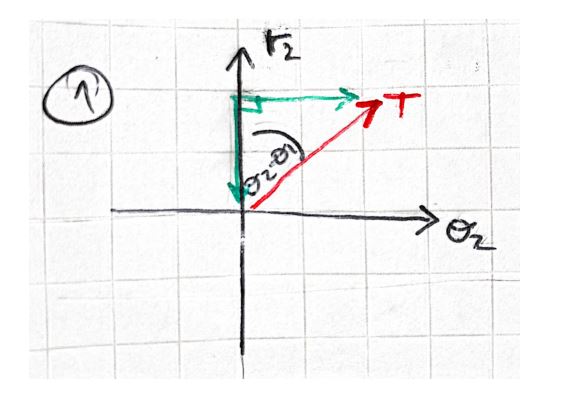 r₂
↑
T
θ₂-θ₁
θ₂